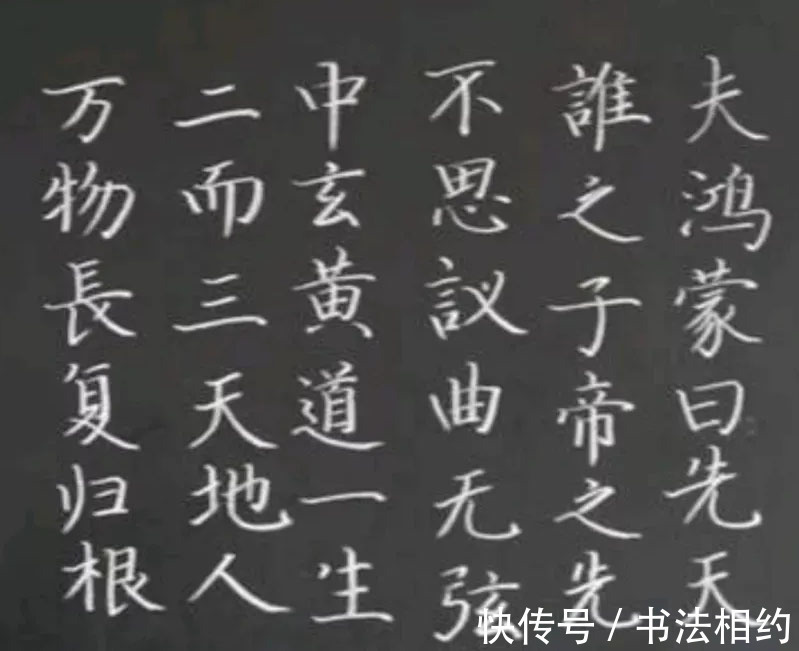 夫鸿蒙曰先天
誰之子帝之先
不思議曲无弦
中玄黄道一生
二而三天地人
万物長复归根
快传号 / 书法相约